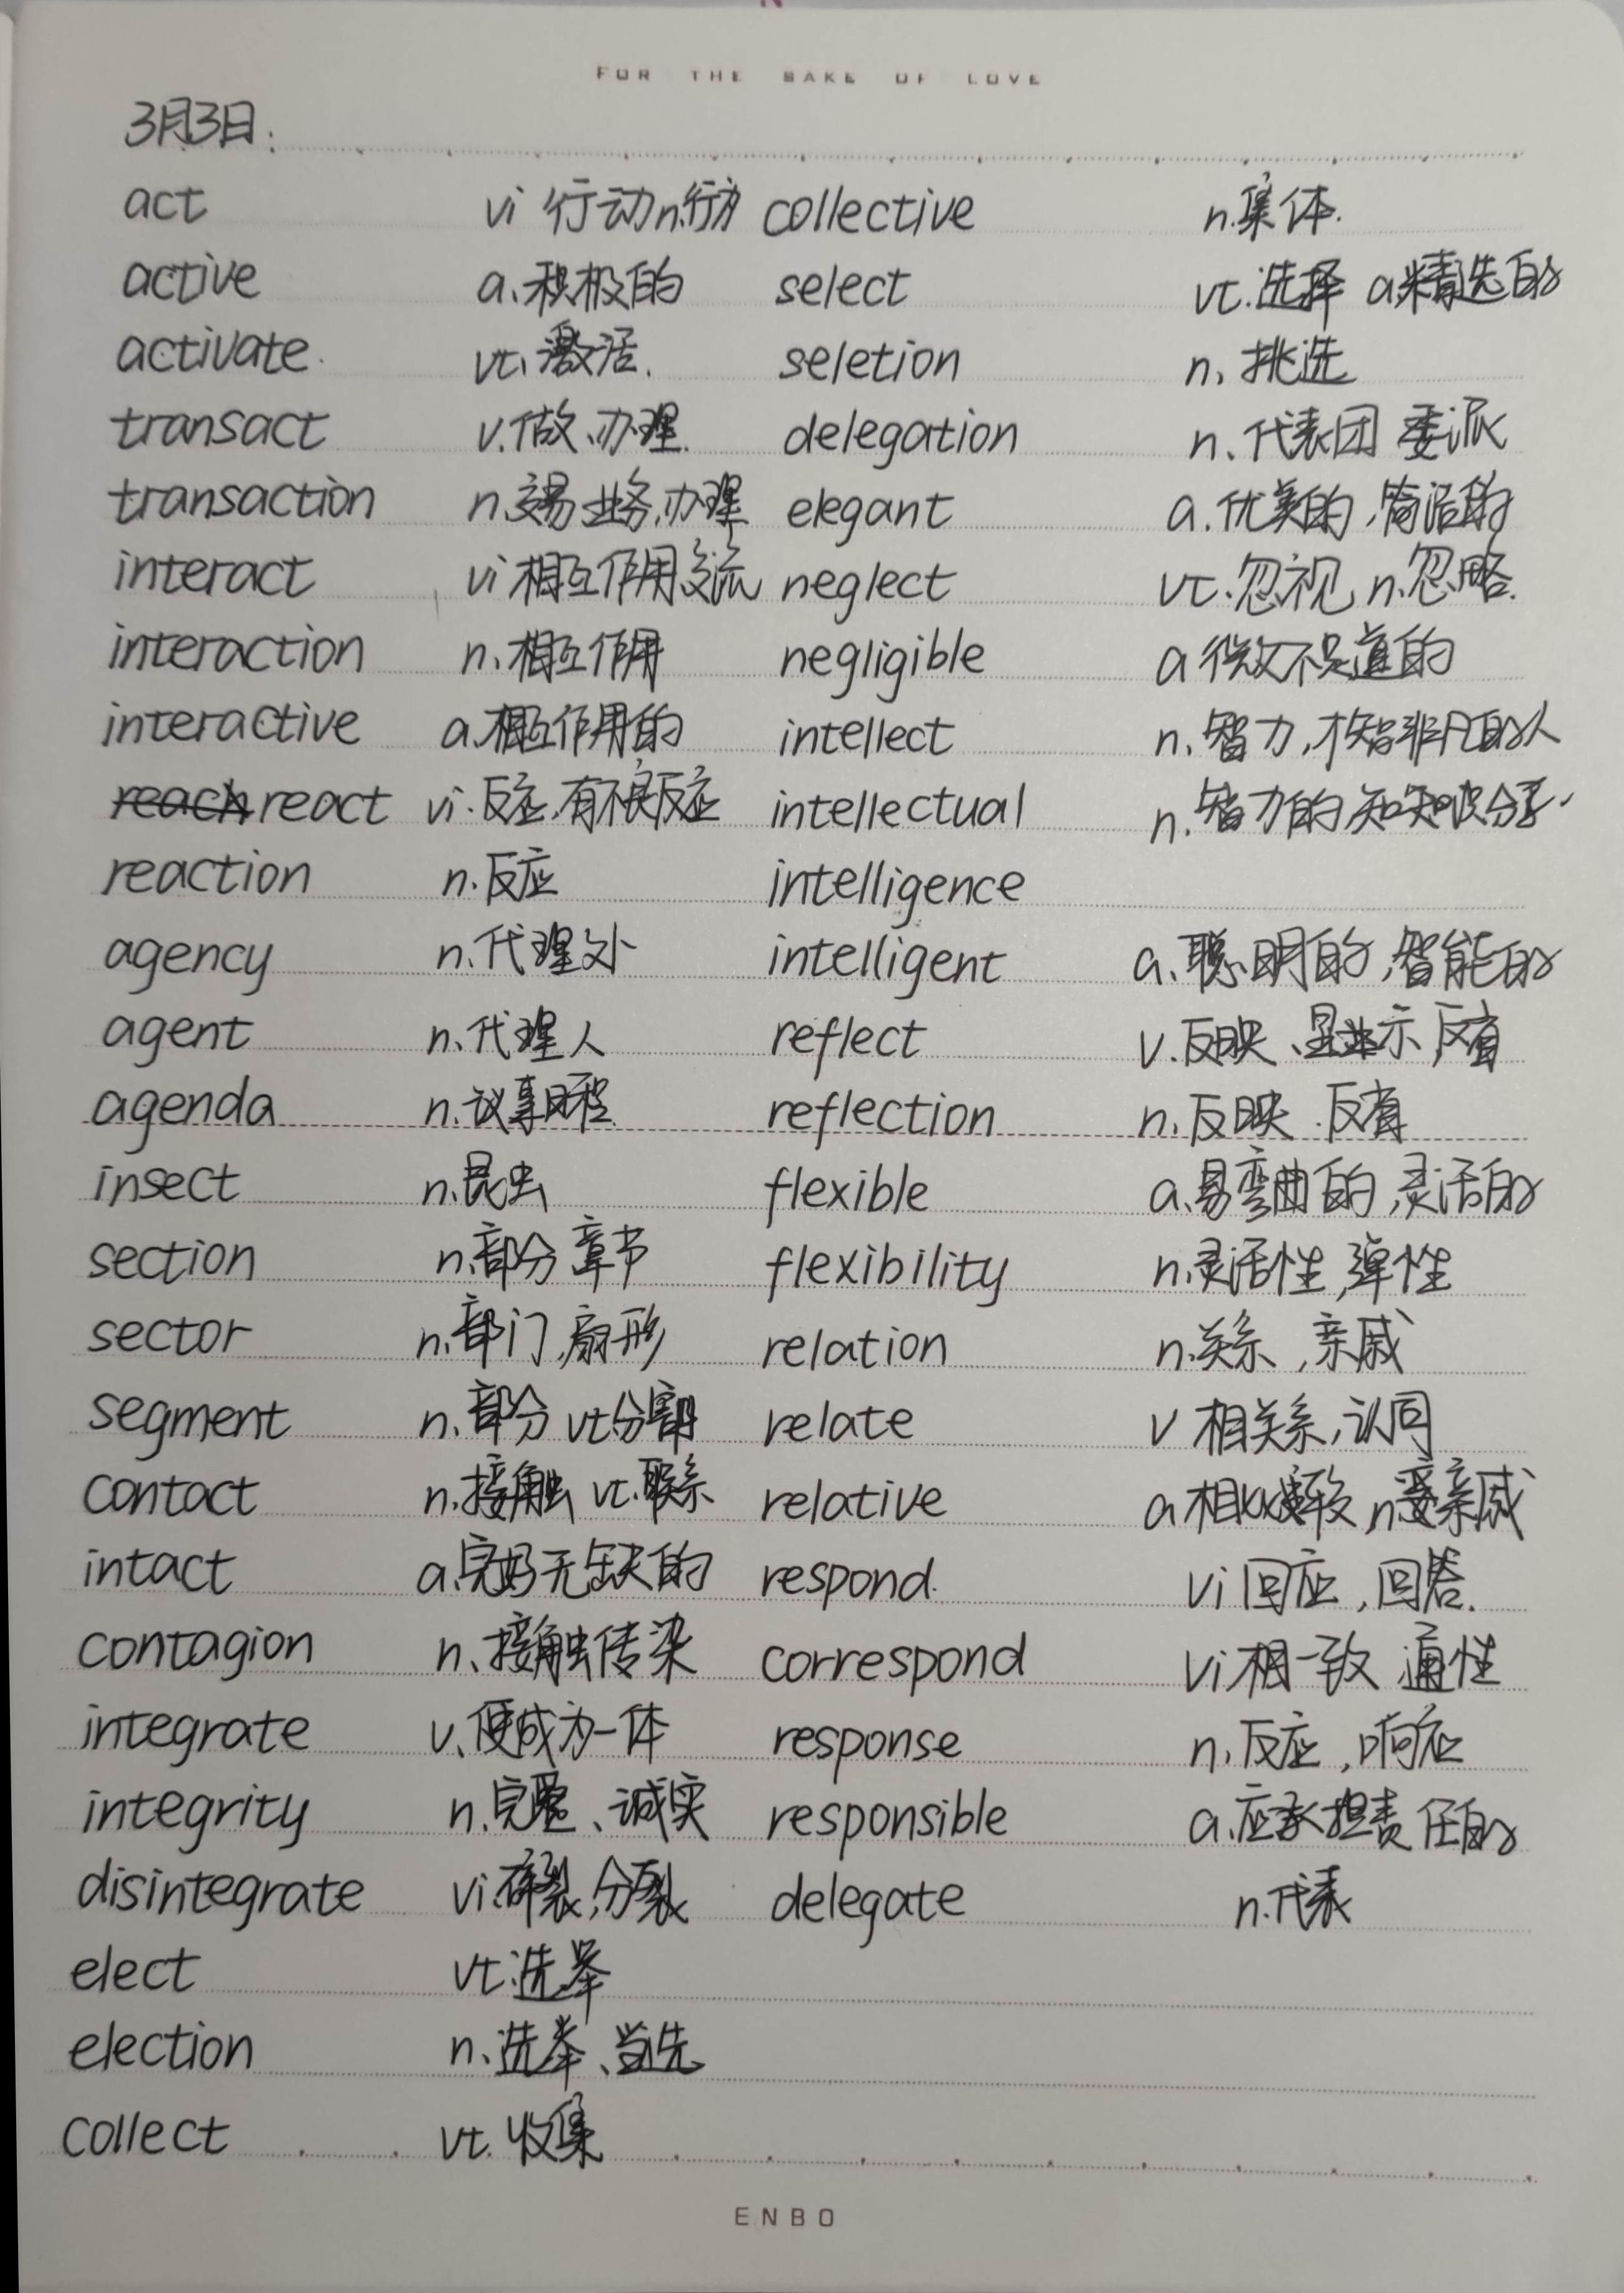 FOR THE SAKE OF LOVE
3月3日:
act vi 行动 n.行为 collective n.集体.
active a.积极的 select vt.选择 a.精选的
activate. vt.激活. seletion n.挑选
transact v.做、办理. delegation n.代表团 委派
transaction n.交易 业务,办理 elegant a.优美的,简洁的
interact vi 相互作用 交流 neglect vt.忽视 n.忽略.
interaction n.相互作用 negligible a 微不足道的
interactive a.相互作用的 intellect n.智力,才智非凡的人
reach react vi.反应,有不良反应 intellectual n.智力的,知识分子.
reaction n.反应 intelligence
agency n.代理处 intelligent a.聪明的,智能的
agent n.代理人 reflect v.反映、显示 反省
agenda n.议事日程 reflection n.反映.反省
insect n.昆虫 flexible a.易弯曲的,灵活的
section n.部分 章节 flexibility n.灵活性,弹性
sector n.部门,扇形 relation n.关系,亲戚
segment n.部分 vt.分割 relate v 相关系,认同
contact n.接触 vt.联系 relative a 相 n 亲戚
intact a.完好无缺的 respond. vi 回应,回答.
contagion n.接触传染 correspond vi 相一致 通性
integrate v.使成为一体 response n.反应,响应
integrity n.完整、诚实 responsible a.应承担责任的
disintegrate vi.碎裂,分裂 delegate n.代表
elect vt.选举
election n.选举、当先
collect vt.收集
ENBO